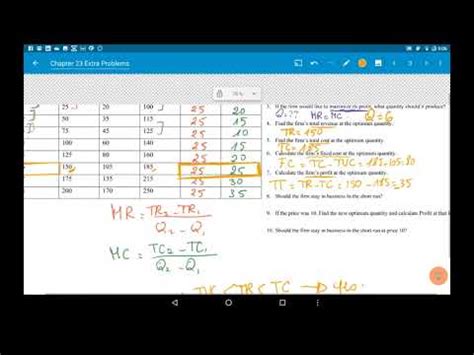 9:06
Chapter 23 Extra Problems
25 20 100 25 20
50 45 125 25 15
75 45 125 25 10
100 60 140 25 15
125 80 160 25 20
150 105 185 25 25
175 135 215 25 30
200 170 250 25 35
3. If the firm would like to maximize its profit, what quantity should it produce?
Q=?? MR=MC Q=6
4. Find the firm's total revenue at the optimum quantity.
TR=150
5. Find the firm's total cost at the optimum quantity.
TC=185
6. Calculate the firm's fixed cost at the optimum quantity.
FC = TC - TVC = 185-105=80
7. Calculate the firm's profit at the optimum quantity.
TT = TR-TC = 150-185=-35
8. Should the firm stay in business in the short run?
9. If the price was 10. Find the new optimum quantity and calculate Profit at that
10. Should the firm stay in business in the short run at price 10?
MR = TR2-TR1
Q2-Q1
MC = TC2-TC1
Q2-Q1